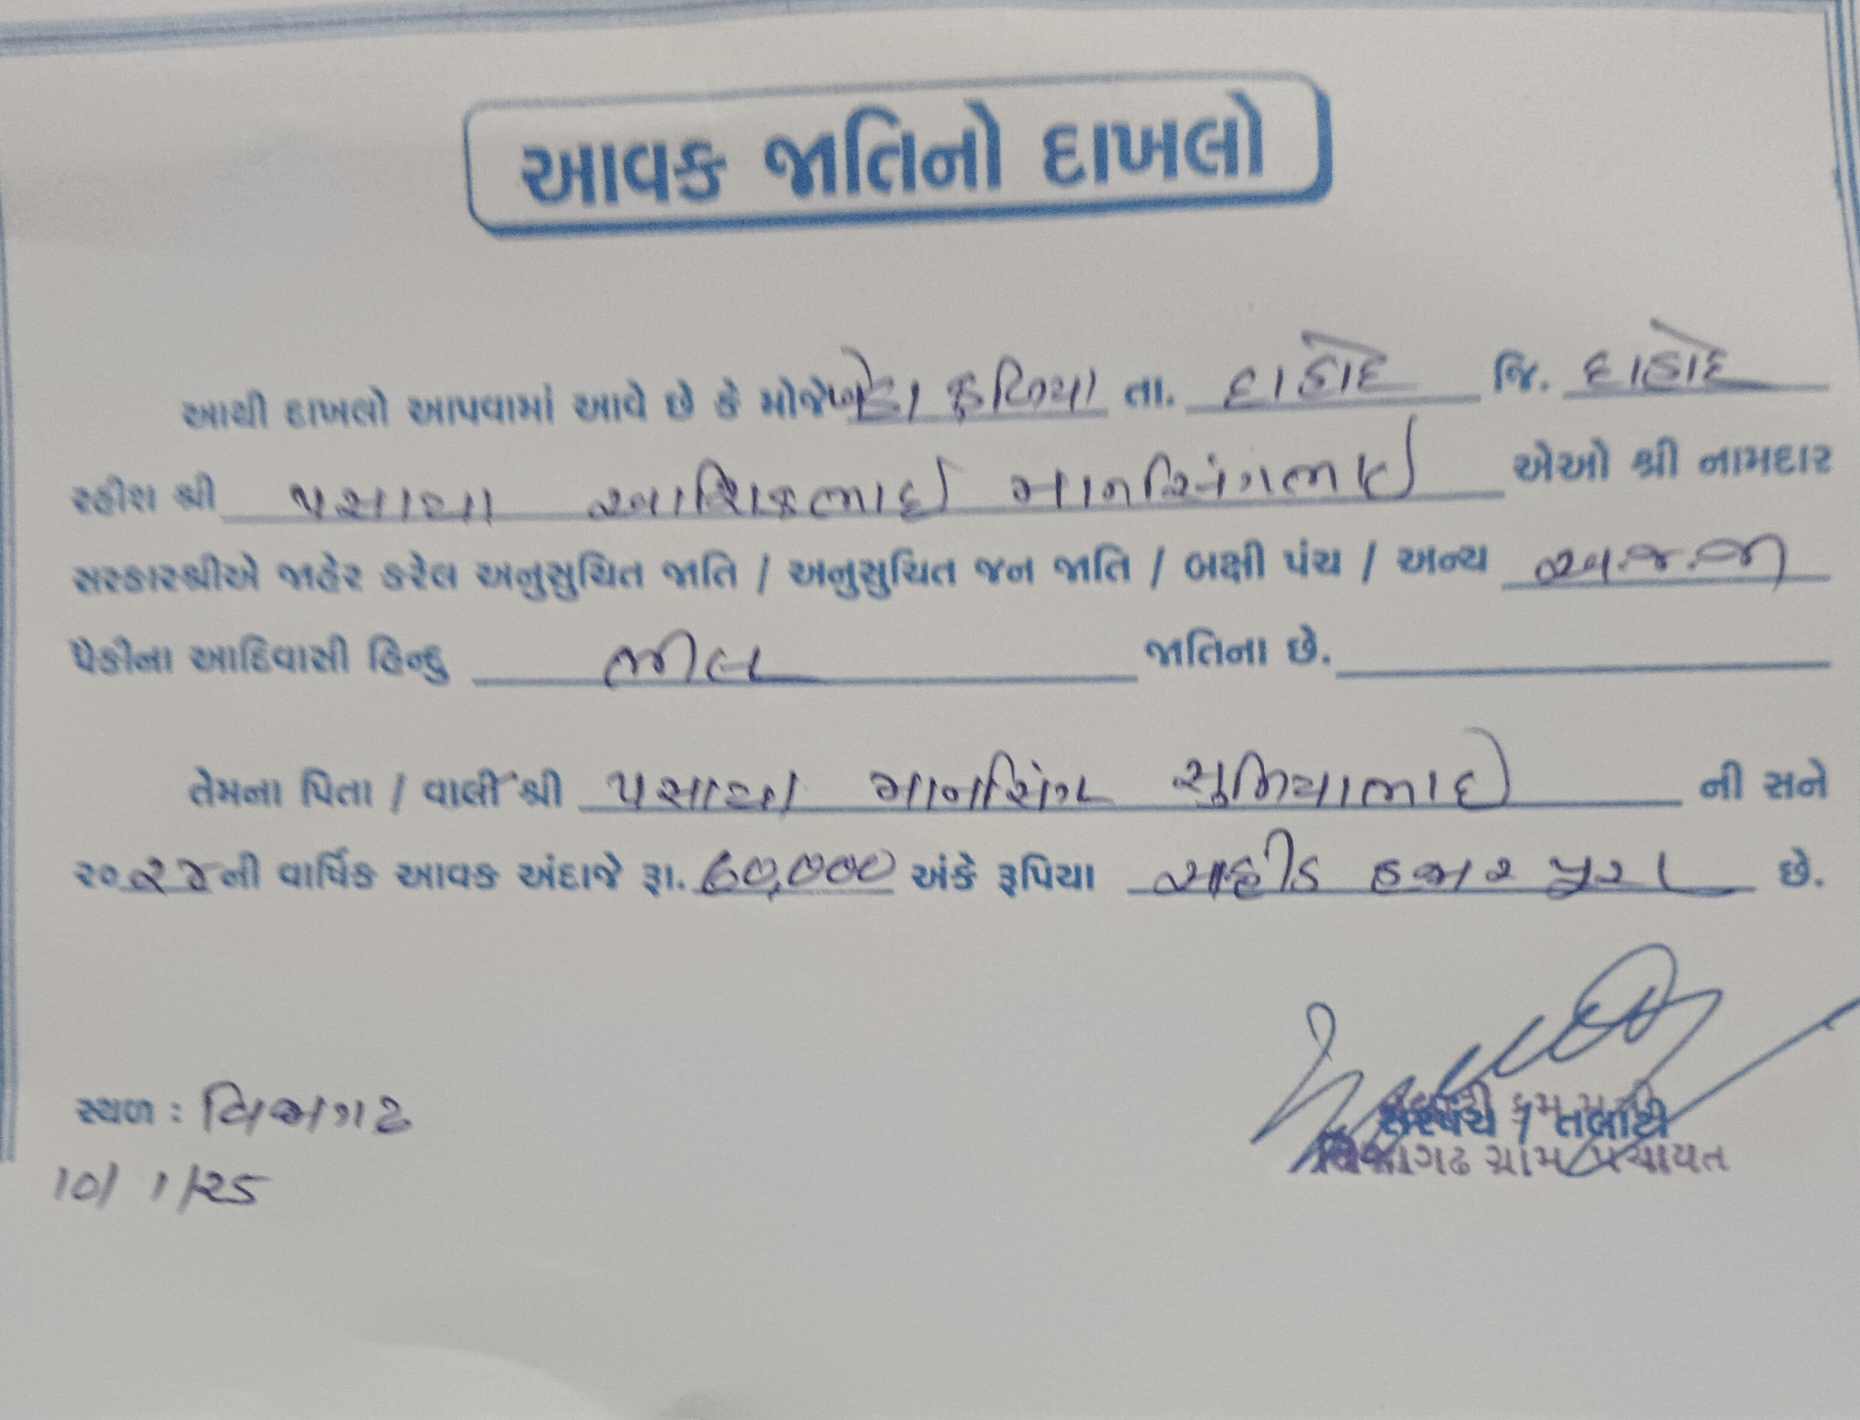 આવક જાતિનો દાખલો
આથી દાખલો આપવામાં આવે છે કે મોજે ખેડા ફળિયા તા. દાહોદ જિ. દાહોદ
રહીશ શ્રી પસાયા આશિકભાઈ માનસિંગભાઈ એઓ શ્રી નામદાર
સરકારશ્રીએ જાહેર કરેલ અનુસુચિત જાતિ / અનુસુચિત જન જાતિ / બક્ષી પંચ / અન્ય અ.જ.જા
પૈકીના આદિવાસી હિન્દુ ભીલ જાતિના છે.
તેમના પિતા / વાલી શ્રી પસાયા માનસિંગ સુમિયાભાઈ ની સને
૨૦૨૪ ની વાર્ષિક આવક અંદાજે રૂા. 60,000 અંકે રૂપિયા સાહીઠ હજાર પુરા છે.
સ્થળ : વિજાગઢ
સરપંચ / તલાટી
વિજાગઢ ગ્રામ પંચાયત
10/ 1/25